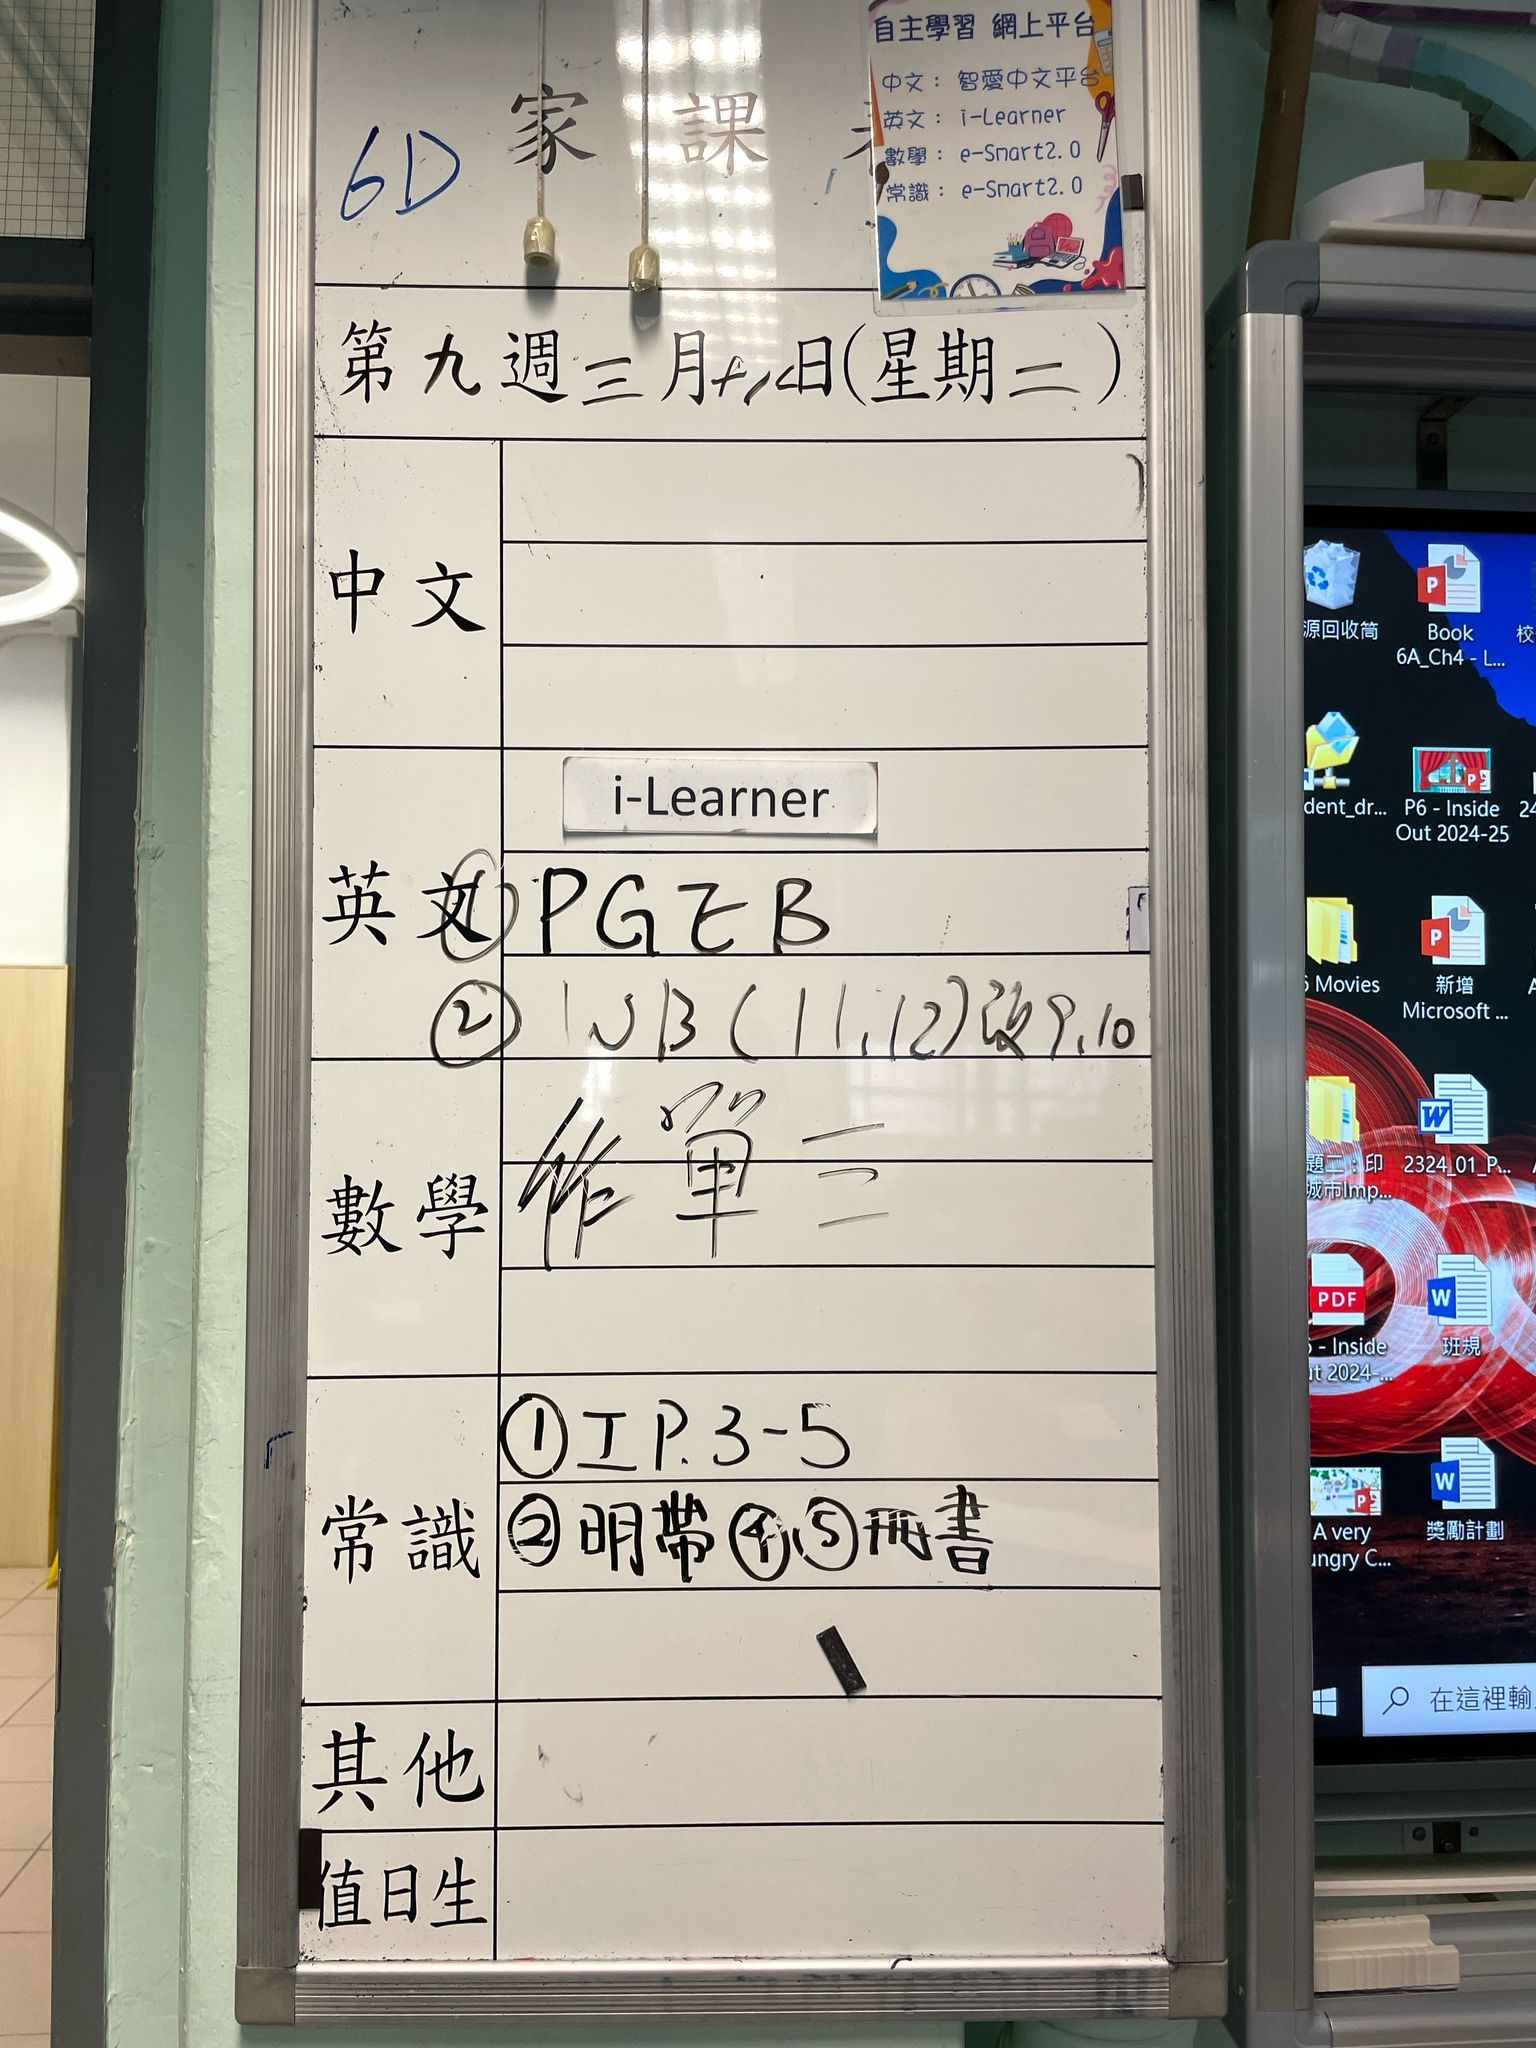 自主學習 網上平台
中文： 智愛中文平台
英文： i-Learner
數學： e-Smart2.0
常識： e-Smart2.0
6D
家課
第九週三月十八日(星期二)
中文
i-Learner
英文
① PGEB
② WB (11,12) 改9,10
數學
作單三
常識
① 工P.3-5
② 明帶④⑤冊書
其他
值日生
源回收筒
Book
6A_Ch4 - L...
校
dent_dr...
P6 - Inside
Out 2024-25
24
6 Movies
新增
Microsoft ...
題二：印
城市Imp...
2324_01_P...
PDF
- Inside
ut 2024-...
班規
A very
ungry C...
獎勵計劃
在這裡輸